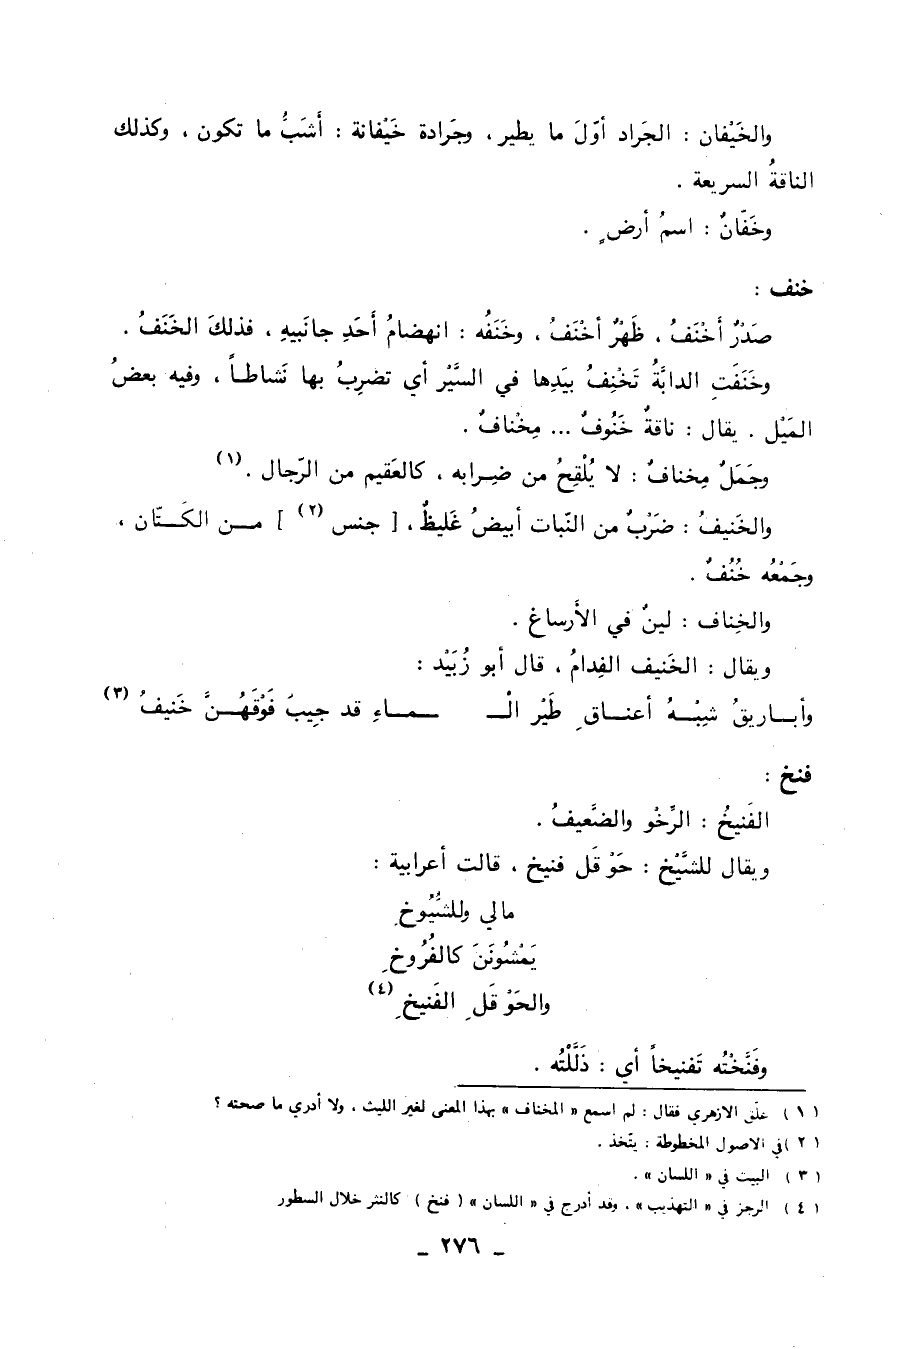 والخَيْفان : الجَراد أوّلَ ما يطير ، وجَرادة خَيْفانة : أَشَبُّ ما تكون ، وكذلك
الناقةُ السريعة .
وخَفّانٌ : اسمُ أرضٍ .
خنف :
صَدْرٌ أَخْنَفُ ، ظَهْرٌ أخْنَفُ ، وخَنَفُه : انهضامُ أَحَدِ جانَبيهِ ، فذلكَ الخَنَفُ .
وخَنَفَتِ الدابَّةُ تَخْنِفُ بيَدِها في السَّيْر أي تضرِبُ بها نَشاطاً ، وفيه بعضُ
المَيْل . يقال : ناقةٌ خَنُوفٌ ... مِخْنافٌ .
وجَمَلٌ مِخنافٌ : لا يُلْقِحُ من ضِرابه ، كالعَقيم من الرّجال .(١)
والخَنيفُ : ضَرْبٌ من النّبات أبيضُ غَليظٌ ، [ جنس (٢) ] مــن الكَــتّان ،
وجَمْعُه خُنُفٌ .
والخِناف : لينٌ في الأَرساغ .
ويقال : الخَنيف الفِدامُ ، قال أبو زُبَيْد :
وأبــاريقُ شِبْــهُ أعنــاقِ طَيْر الْـ ـمــاءِ قد جِيبَ فَوْقَهُــنَّ خَنيفُ (٣)
فنخ :
الفَنيخُ : الرِّخْو والضَّعيفُ .
ويقال للشَّيْخ : حَوْقَل فنيخ ، قالت أعرابية :
مالي وللشُّيُوخِ
يَمْشُونَنَ كالفُرُوخِ
والحَوْقَلِ الفَنيخِ (٤)
وفَنَّخْتُه تَفنيخاً أي : ذَلَّلْتُه .
( ١ ) علّق الازهري فقال : لم اسمع « المخناف » بهذا المعنى لغير الليث ، ولا أدري ما صحته ؟
( ٢ ) في الاصول المخطوطة : يتّخذ .
( ٣ ) البيت في « اللسان » .
( ٤ ) الرجز في « التهذيب » ، وقد أدرج في « اللسان » ( فنخ ) كالنثر خلال السطور
ـ ٢٧٦ ـ